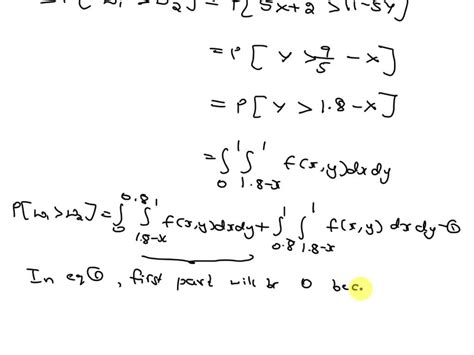 P[W₁ > W₂] = P[5X+2 > 11-5Y]
= P[Y > 9/5 - X]
= P[Y > 1.8 - X]
= ∫₀¹ ∫₁.₈₋ₓ¹ f(x,y) dx dy
P[W₁>W₂] = ∫₀^0.8 ∫₁.₈₋ₓ¹ f(x,y) dx dy + ∫₀.₈¹ ∫₁.₈₋ₓ¹ f(x,y) dx dy -①
In eq①, first part will be 0 bec.